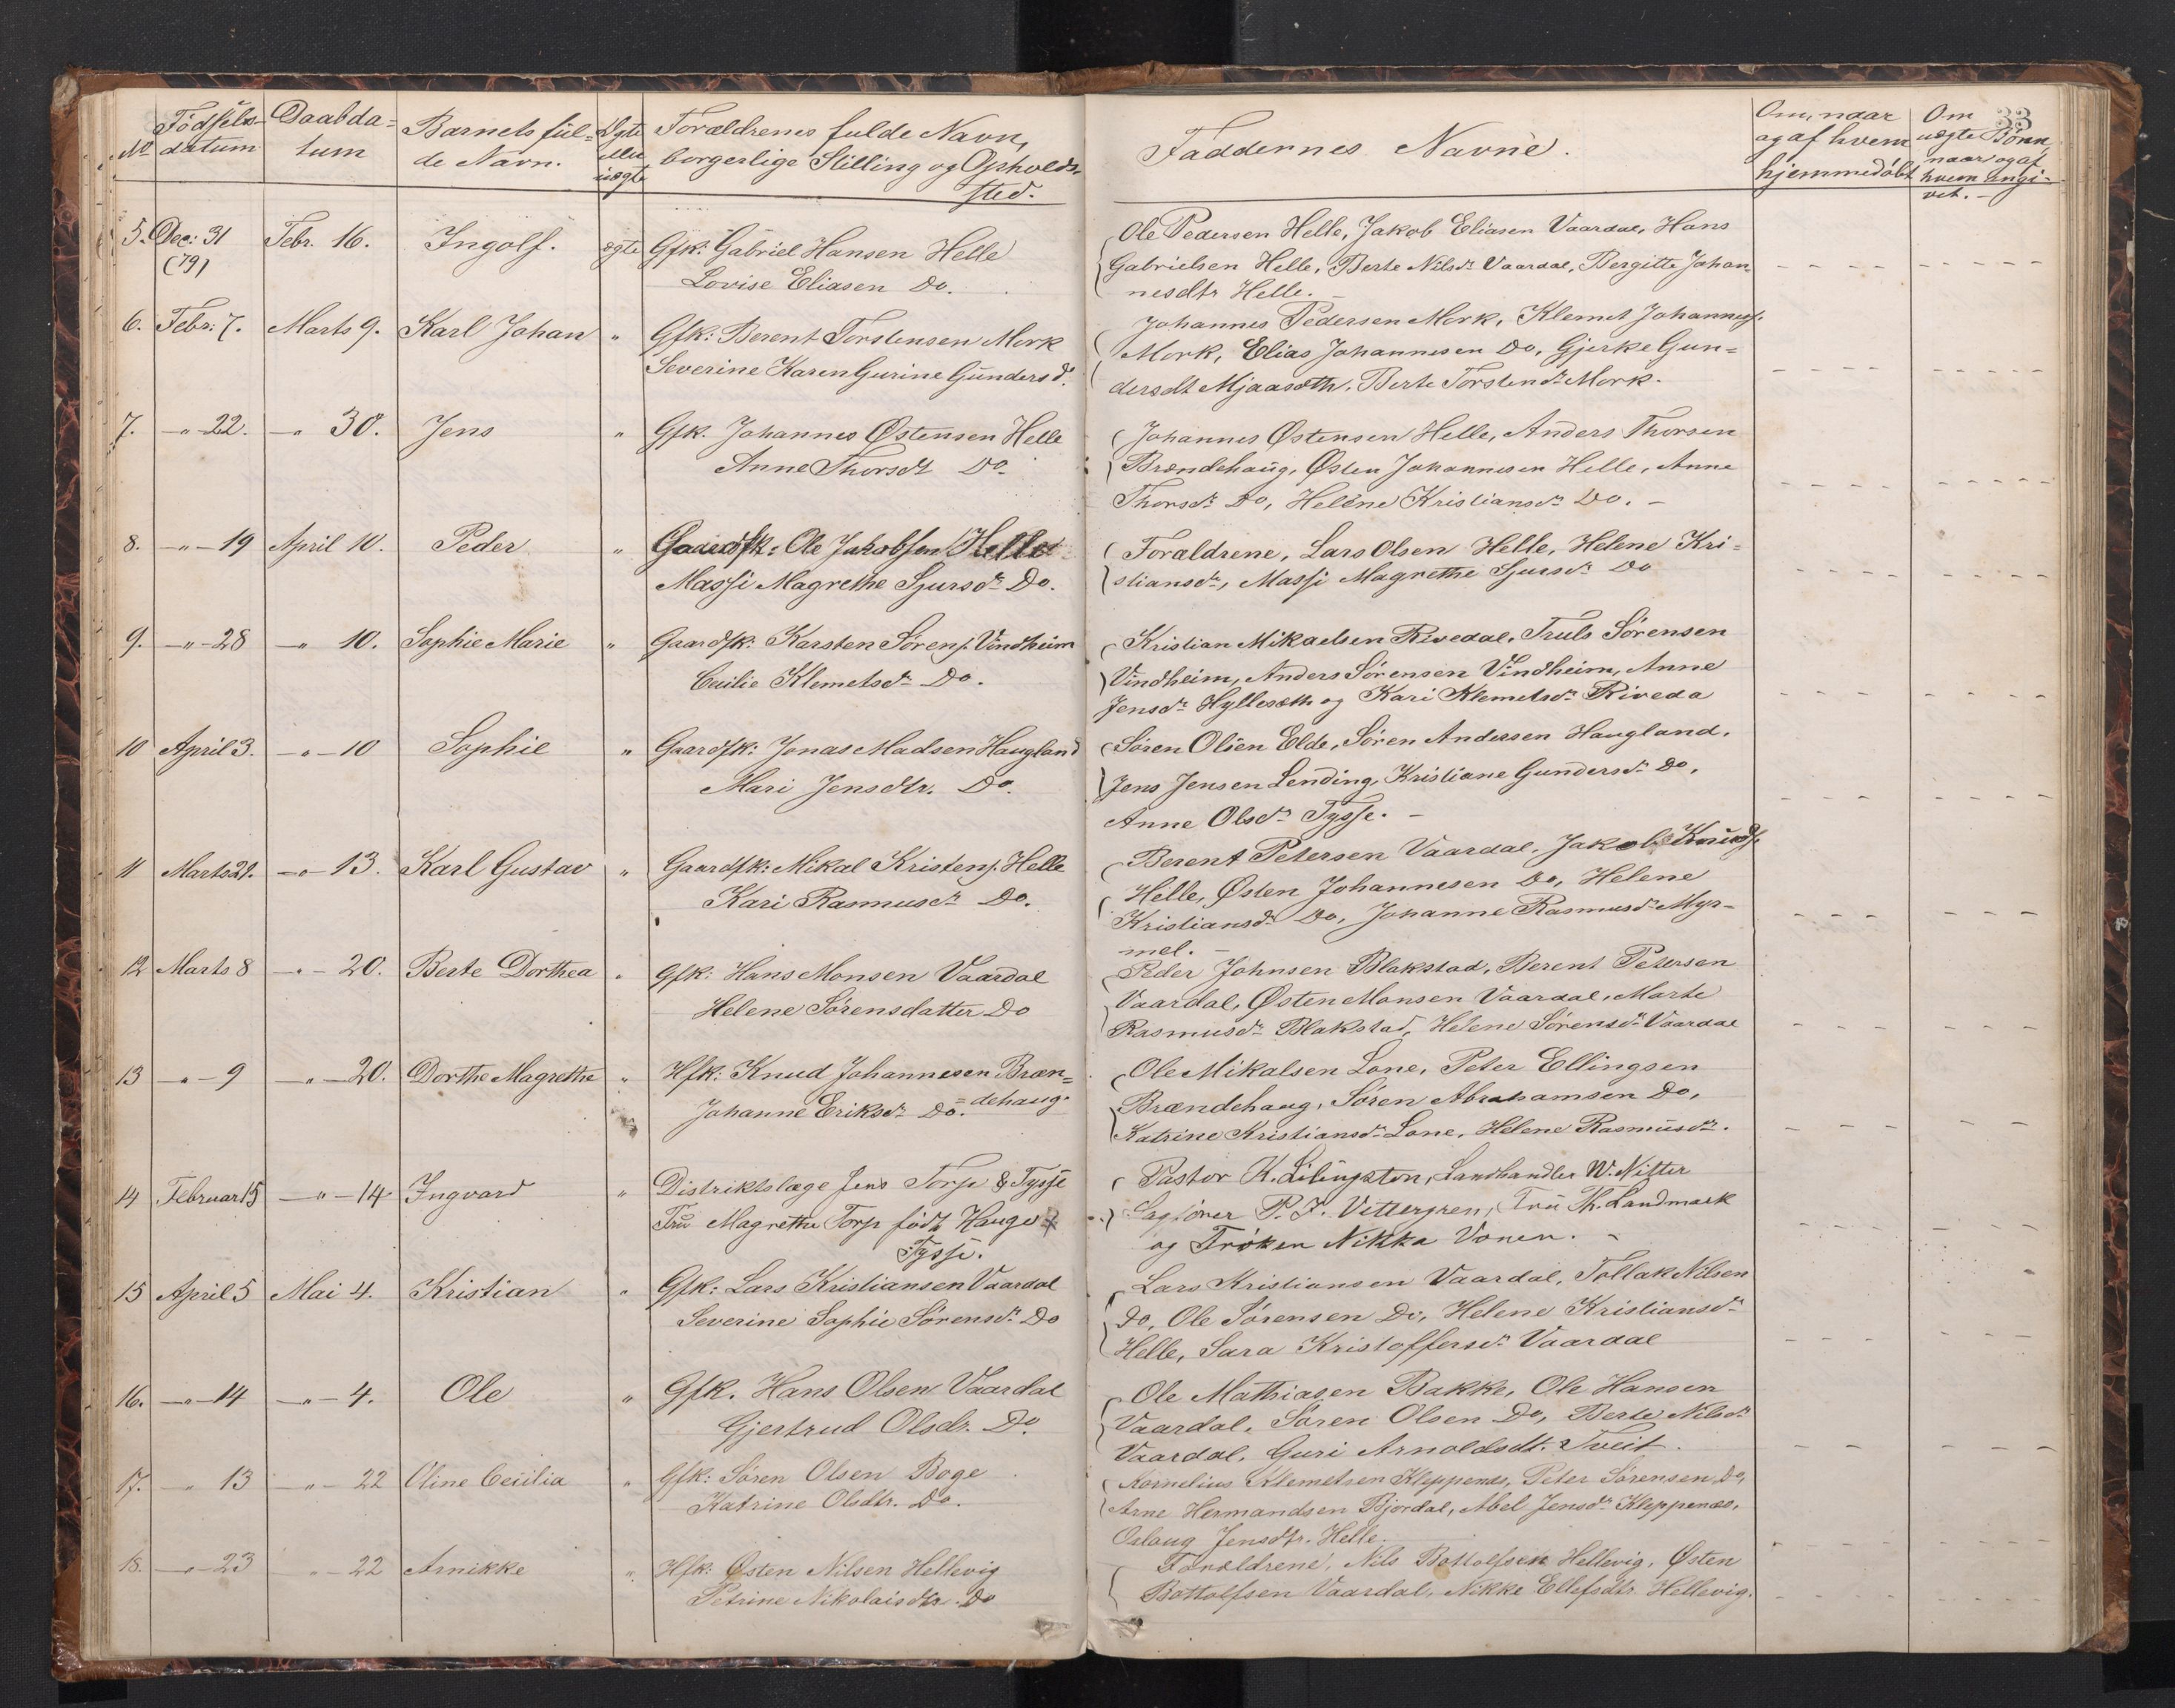 No Fødsels-datum Daabda-tum Barnets ful-de Navn. Ægte eller uægte Forældrenes fulde Navn, borgerlige Stilling og Opholds-sted. Faddernes Navne. Om, naar og af hvem hjemmedøbt Om uægte Børn, naar og af hvem angi-vet. 33
5. Dec: 31 (79) Febr. 16. Ingolf. ægte Gfk: Gabriel Hansen Helle
Lovise Eliasen Do.
Ole Pedersen Helle, Jakob Eliasen Vaardal, Hans
Gabrielsen Helle, Berte Nilsdr Vaardal, Bergitte Johan-
nesdtr Helle. –
6. Febr: 7. Marts 9. Karl Johan " Gfk: Berent Torstensen Mork
Severine Karen Gurine Gundersd.
Johannes Pedersen Mork, Klemet Johannesf.
Mork, Elias Johannesen Do, Gjerke Gun=
dersdt Mjaasæth, Berte Torstendr Mork.
7. –"– 22. –" 30. Jens " Gfk. Johannes Østensen Helle
Anne Thorsdt Do.
Johannes Østensen Helle, Anders Thorsen
Brændehaug, Østen Johannesen Helle, Anne
Thorsdr Do, Helene Kristiansdr Do. –
8. –"– 19 April 10. Peder " Gaardfk: Ole Jakobsen Helle
Massi Magrethe Sjursdr Do.
Foraldrene, Lars Olsen Helle, Helene Kri=
stiansdr, Massi Magrethe Sjursdr Do
9. –"– 28 –" 10. Sophie Marie " Gaardfk: Karsten Sørens. Vindheim
Cecilie Klemetsdr Do.
Kristian Mikaelsen Rivedal, Truls Sørensen
Vindheim, Anders Sørensen Vindheim, Anne
Jensdr Hyllesæth og Kari Klemetsdr Riveda
10 April 3. –"– 10 Sophie " Gaardfk: Jonas Madsen Haugland
Mari Jensdtr. Do.
Søren Olsen Elde, Søren Andersen Haugland,
Jens Jensen Lending, Kristiane Gundersdr Do,
Anne Olsdr Tysse. –
11 Marts 21. –"– 13. Karl Gustav " Gaardfk: Mikal Kristens. Helle
Kari Rasmusdr Do.
Berent Petersen Vaardal, Jakob Knudsf.
Helle, Østen Johannesen Do, Helene
Kristiansdr Do, Johanne Rasmusdr Myr-
mel. –
12 Marts 8 –"– 20. Berte Dorthea " Gfk: Hans Monsen Vaardal
Helene Sørensdatter Do
Peder Johnsen Blakstad, Berent Petersen
Vaardal, Østen Monsen Vaardal, Marte
Rasmusdr Blakstad, Helene Sørensdr Vaardal
13 –"– 9 –"– 20. Dorthe Magrethe " Hfk: Knud Johannesen Bræn=
Johanne Eriksdr Do. =dehaug.
Ole Mikalsen Lone, Peter Ellingsen
Brændehaug, Søren Abrahamsen Do,
Katrine Kristiansdr Lone, Helene Rasmusdr.
14 Februar 15 –"– 14 Ingvard " Distriktslæge Jens Torp Tysse
Fru Magrethe Torp født Hauge
Tysse.
Pastor K. Lilingston, Landhandler W. Nitter
Sagfører P. J. Vittergren, Fru Th. Landmark
og Frøken Nikka Vonen. –
15 April 5 Mai 4. Kristian " Gfk: Lars Kristiansen Vaardal
Severine Sophie Sørensdr Do
Lars Kristiansen Vaardal, Tollak Nilsen
Do, Ole Sørensen Do, Helene Kristiansdr
Helle, Sara Kristoffersdr Vaardal
16. –"– 14 –"– 4. Ole " Gfk. Hans Olsen Vaardal
Gjertrud Olsdr. Do.
Ole Mathiasen Bakke, Ole Hansen
Vaardal, Søren Olsen Do, Berte Nilsdr
Vaardal, Guri Arnoldsdt. Tveit.
17. –" 13 –"– 22 Oline Cecilia " Gfk: Søren Olsen Boge
Katrine Olsdtr. Do.
Kornelius Klemetsen Kleppenes, Peter Sørensen Do,
Arne Hermandsen Bjordal, Abel Jensdr Kleppenæs,
Oslaug Jensdtr. Helle.
18. –"– 23 "– 22 Arnikke " Hfk: Østen Nilsen Hellevig
Petrine Nikolaisdtr. Do
Forældrene, Nils Bottolfsen Hellevig, Østen
Bottolfsen Vaardal, Nikke Ellefsdtr Hellevig.